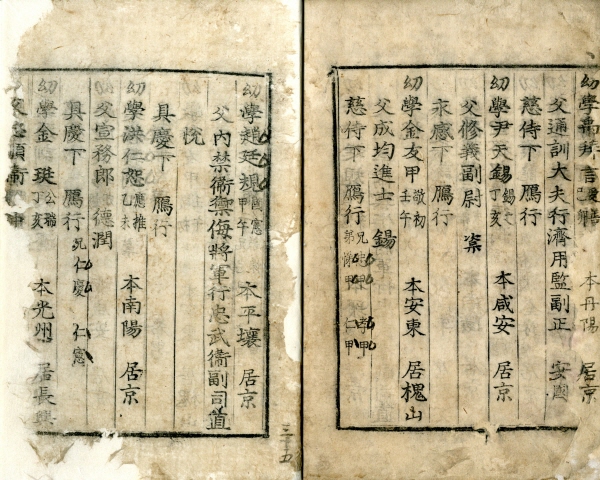 幼學禹 言 本丹陽 居京
父通訓大夫行濟用監副正 安國
慈侍下 鴈行
幼學尹天錫 錫之 丁亥 本咸安 居京
父修義副尉 寀
永感下 鴈行
幼學金友甲 敬初 壬午 本安東 居槐山
父成均進士 錫
慈侍下 鴈行 兄 甲 弟 甲 孝甲 仁甲
幼學趙廷規 憲 甲午 本平壤 居京
父內禁衛禦侮將軍行忠武衛副司直
悅
具慶下 鴈行
幼學洪仁恕 應推 乙未 本南陽 居京
父宣務郎 德潤
具慶下 鴈行 兄仁慶 仁憲
幼學金 公聯 丁亥 本光州 居長興
三十五